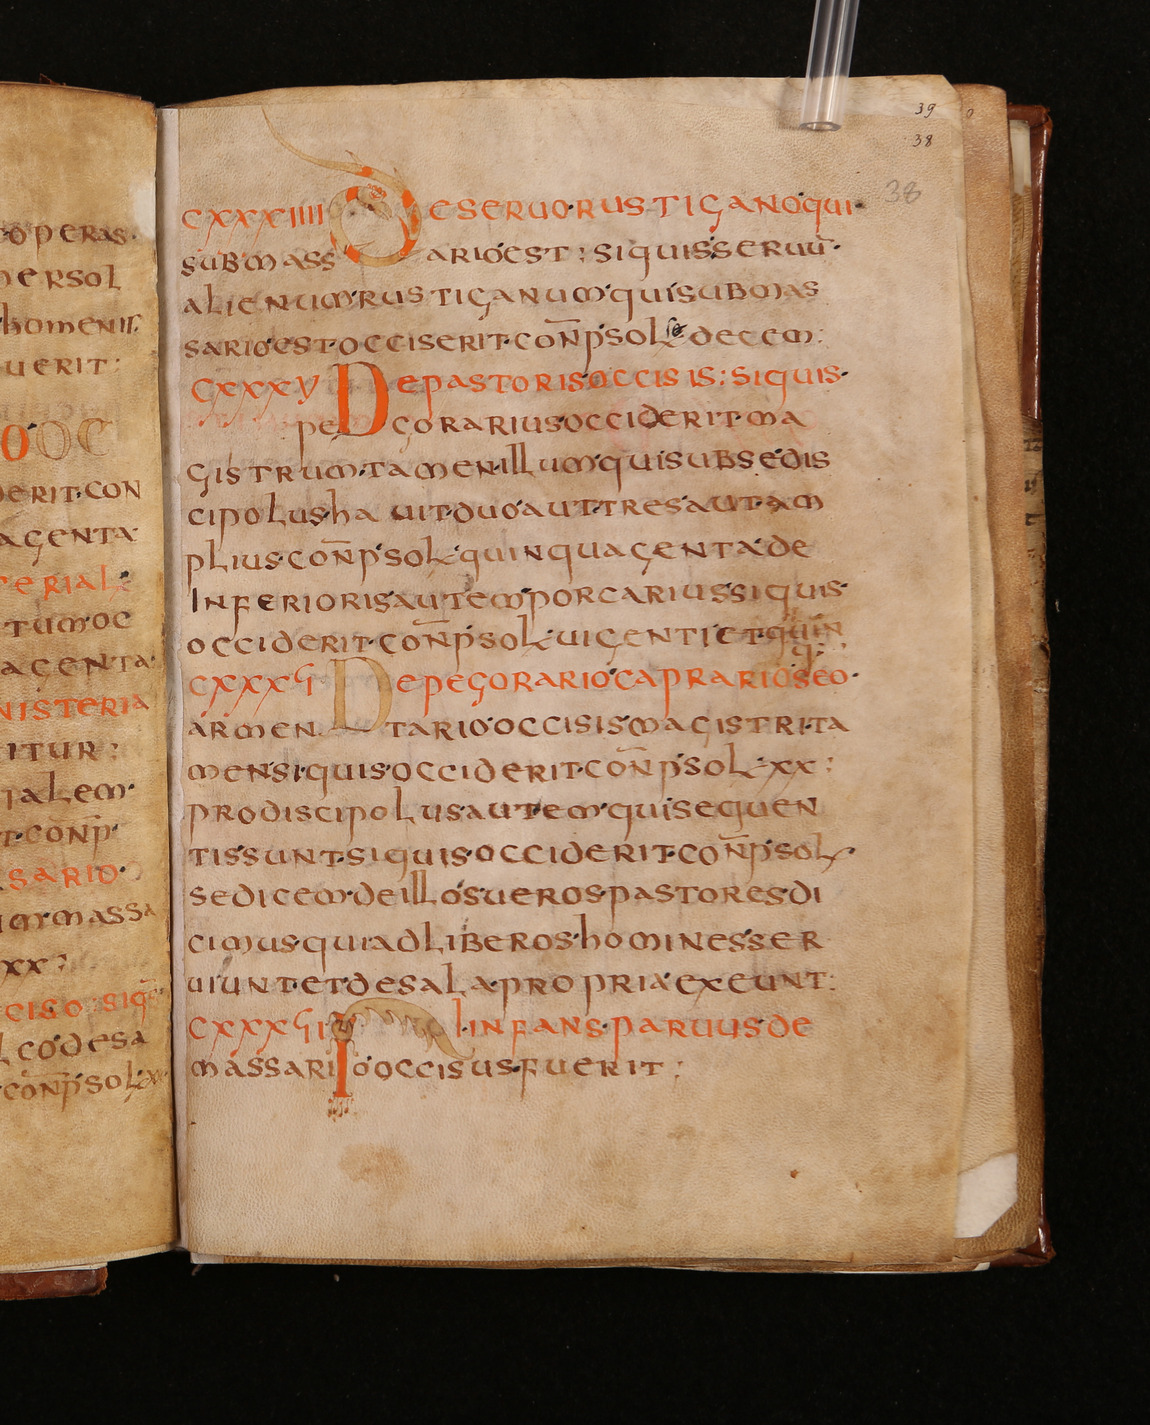 operas·
mersol
homenir
uerit:
o·oc
derit·con
agenta·
terial:
tum·oc
agenta·
nisteria
itur:
ialem·
t·conp̄·
sario·
im·massa
xx:
ciso: siq
l co·desa
conp̄·sol·xx
39
38
38
CXXXIIII De seruo·rusticano·qui·
sub mass ario est: si quis seruū·
alienum·rusticanum·qui sub mas
sario est·occiserit·con̄p·sol· decem:
CXXXV De pastoris·occisis: si quis·
pe corarius·occiderit·ma
gistrum·tamen·illum·qui sub se·dis
cipolus·ha uit·duo·aut·tres·aut·am
plius·con̄p·sol·quinquagenta·de
inferioris·autem·porcarius·si quis·
occiderit·con̄p·sol·uigenti et·quin
q;:
CXXXVI De pegorario·caprario·seo·
armen tario·occisis·magistri·ta
men·si quis·occiderit·con̄p·sol·xx:
pro discipolus·autem·qui sequen
tis sunt·si quis·occiderit·con̄p·sol·
sedicem·de illos·ueros·pastores·di
cimus·qui ad liberos·homines·ser
uiunt·et·de sala·propria·exeunt:
CXXXVII Si l·infans·paruus·de
massario·occisus·fuerit: